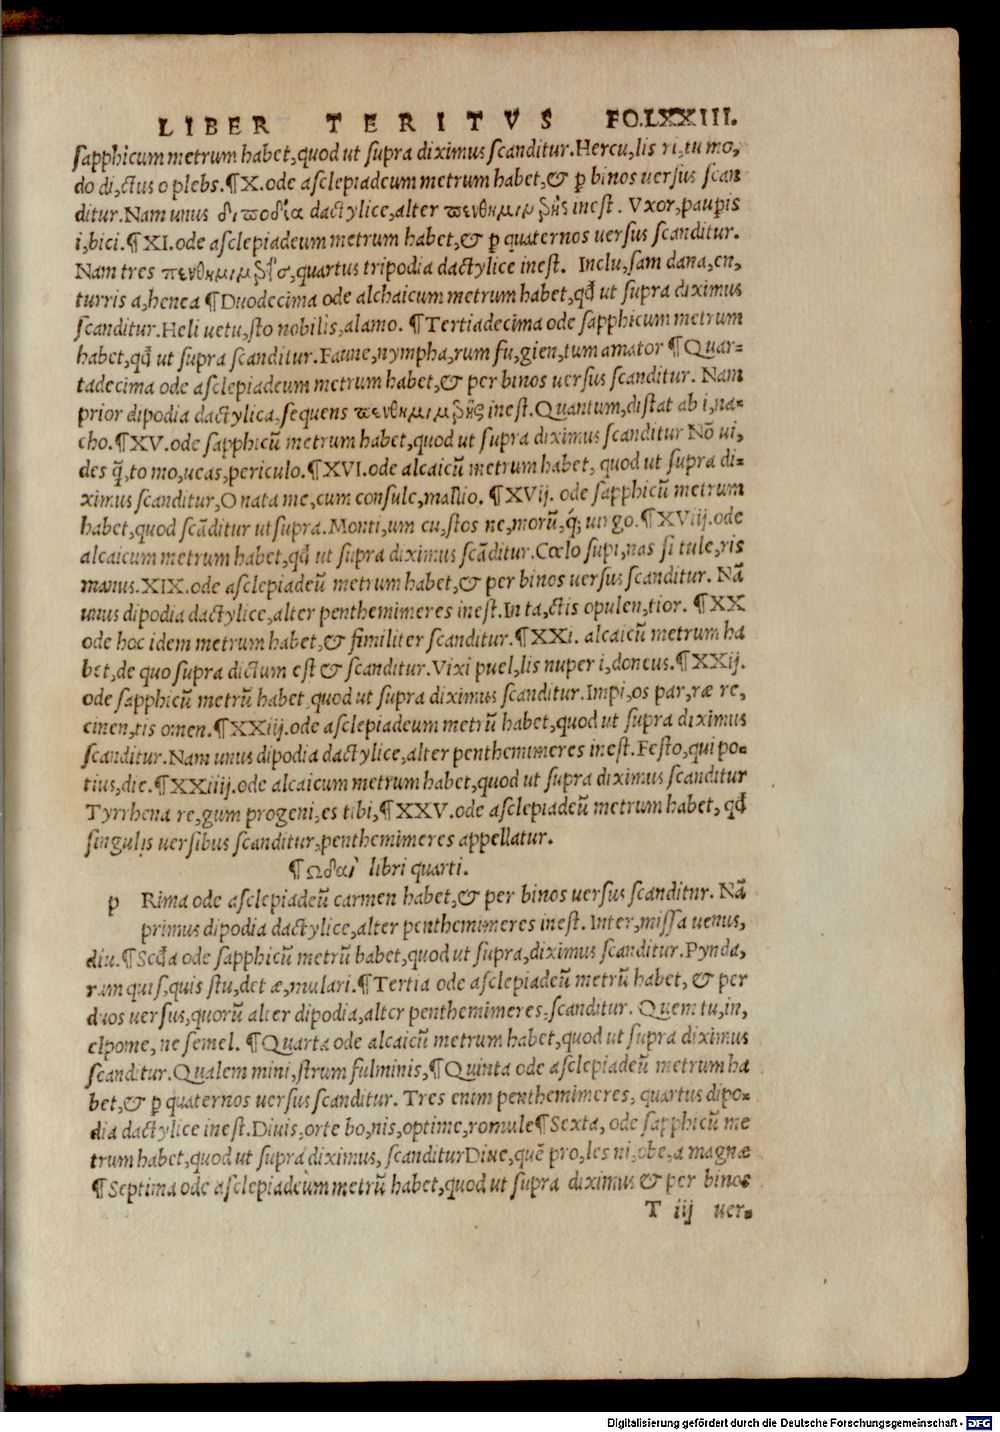 LIBER TERITVS FO.LXXIII.
sapphicum metrum habet,quod ut supra diximus scanditur.Hercu,lis ri,tu mo,
do di,ctus o plebs.¶X.ode asclepiadeum metrum habet,& ꝑ binos uersus scan
ditur.Nam unus διποδία dactylice,alter πενθημιμρὴς inest. Vxor,pauꝑis
i,bici.¶XI.ode asclepiadeum metrum habet,& ꝑ quaternos uersus scanditur.
Nam tres quartus tripodia dactylice inest. Inclu,sam dana,en,
turris a,henea ¶Duodecima ode alchaicum metrum habet,qđ ut supra diximus
scanditur.Heli uetu,sto nobilis,alamo. ¶Tertiadecima ode sapphicum metrum
habet,qđ ut supra scanditur.Faune,nympha,rum fu,gien,tum amator ¶Quar=
tadecima ode asclepiadeum metrum habet,& per binos uersus scanditur. Nam
prior dipodia dactylica,sequens πενθημιμρὴς inest.Quantum,distat ab i,na=
cho.¶XV.ode sapphicū metrum habet,quod ut supra diximus scanditur Nō ui,
des q̄,to mo,ueas,periculo.¶XVI.ode alcaicū metrum habet, quod ut supra di=
ximus scanditur,O nata me,cum consule,manlio. ¶XVij. ode sapphicū metrum
habet,quod scāditur ut supra.Monti,um cu,stos ne,morū,q́; uirgo.¶XViij.ode
alcaicum metrum habet,qđ ut supra diximus scāditur.Cœlo supi,nas si tule,ris
manus.XIX.ode asclepiadeū metrum habet,& per binos uersus scanditur. Nā
unus dipodia dactylice,alter penthemimeres inest.In ta,ctis opulen,tior. ¶XX
ode hoc idem metrum habet,& similiter scanditur.¶XXi. alcaicū metrum ha
bet,de quo supra dictum est & scanditur.Vixi puel,lis nuper i,doneus.¶XXij.
ode sapphicū metrū habet,quod ut supra diximus scanditur.Impi,os par,ræ re,
cinen,tis omen.¶XXiij.ode asclepiadeum metrū habet,quod ut supra diximus
scanditur.Nam unus dipodia dactylice,alter penthemimeres inest.Festo,qui po=
tius,die.¶XXiiij.ode alcaicum metrum habet,quod ut supra diximus scanditur
Tyrrhena re,gum progeni,es tibi,¶XXV.ode asclepiadeū metrum habet, qđ
singulis uersibus scanditur,penthemimeres appellatur.
¶Ωδαὶ libri quarti.
p Rima ode asclepiadeū carmen habet,& per binos uersus scanditur. Nā
primus dipodia dactylice,alter penthemimeres inest.Inter,missa uenus,
diu.¶Secđa ode sapphicū metrū babet,quod ut supra,diximus scanditur.Pynda,
rum quis,quis stu,det æ,mulari.¶Tertia ode asclepiadeū metrū habet, & per
duos uersus,quorū alter dipodia,alter penthemimeres.scanditur. Quem tu,in,
elpome,ne semel. ¶Quarta ode alcaicū metrum habet,quod ut supra diximus
scanditur.Qualem mini,strum fulminis,¶Quinta ode asclepiadeū metrum ha
bet,& ꝑ quaternos uersus scanditur. Tres enim penthemimeres, quartus dipo=
dia dactylice inest.Diuis,orte bo,nis,optime,romule¶Sexta, ode sapphicū me
trum habet,quod ut supra diximus, scanditurDiue,quē pro,les ni,obe,a magnæ
¶Septima ode asclepiadeum metrū habet,quod ut supra diximus & per binos
T iij uer=
Digitalisierung gefördert durch die Deutsche Forschungsgemeinschaft - DFG